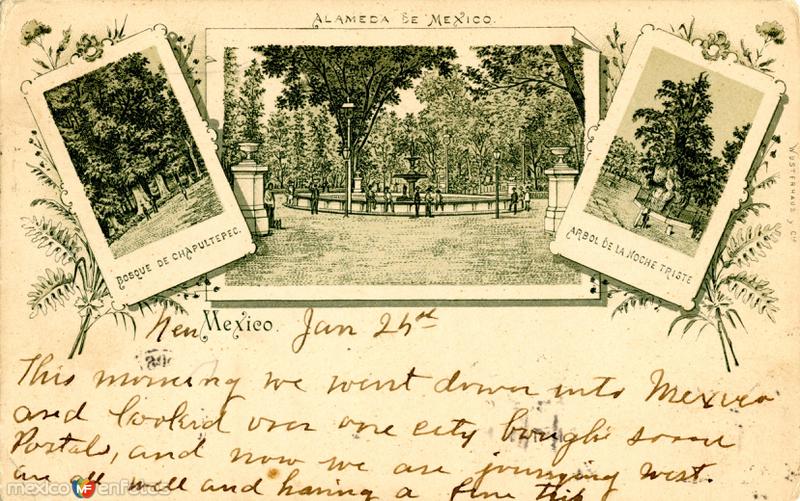 ALAMEDA DE MEXICO.
BOSQUE DE CHAPULTEPEC.
ARBOL DE LA NOCHE TRISTE
WUSTENHAUS y Cia
New Mexico. Jan 25st
This morning we went down into Mexico
and looked over one city bought some
Portals, and now we are journying west.
are all well and having a fine trip
mexico en fotos